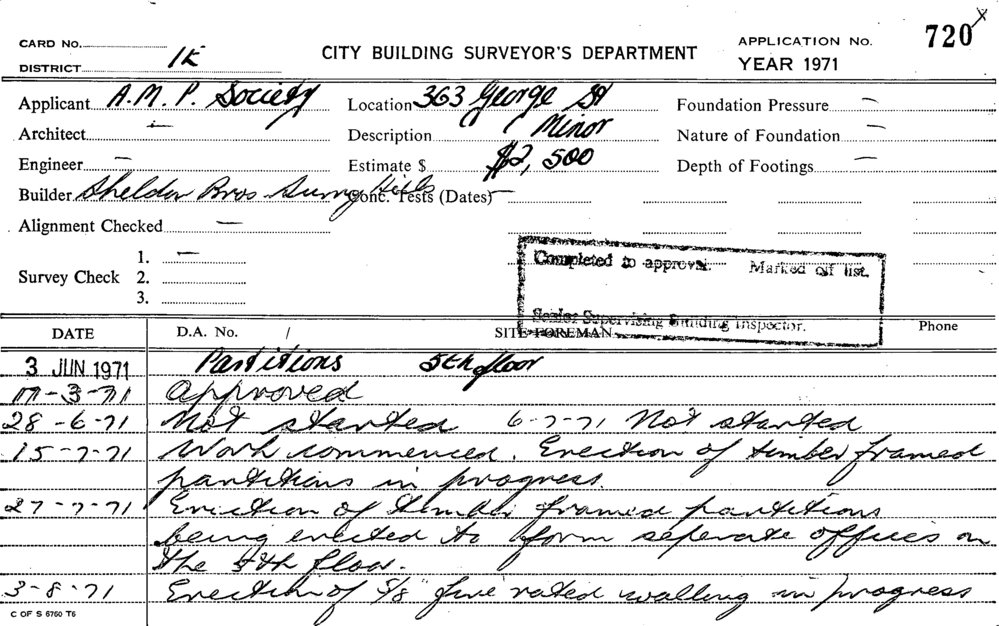 CARD No.
DISTRICT 1K
CITY BUILDING SURVEYOR'S DEPARTMENT
APPLICATION No. 720 X
YEAR 1971
Applicant A.M.P. Society Location 363 George St Foundation Pressure —
Architect — Description Minor Nature of Foundation —
Engineer — Estimate $ $2,500 Depth of Footings —
Builder Sheldon Bros Surry Hills Conc. Tests (Dates) —
Alignment Checked —
Survey Check 1. —
2.
3.
Completed to approval. Marked off list.
Senior Supervising Building Inspector.
DATE D.A. No. / SITE FOREMAN Phone
3 JUN 1971 Partitions 5th floor
Approved
28-6-71 Not started 6-7-71 Not started
15-7-71 Work commenced. Erection of timber framed
partitions in progress.
27-7-71 Erection of timber framed partitions
being erected to form seperate offices on
the 5th floor.
3-8-71 Erection of 5/8" fire rated walling in progress
C OF S 6760 T6